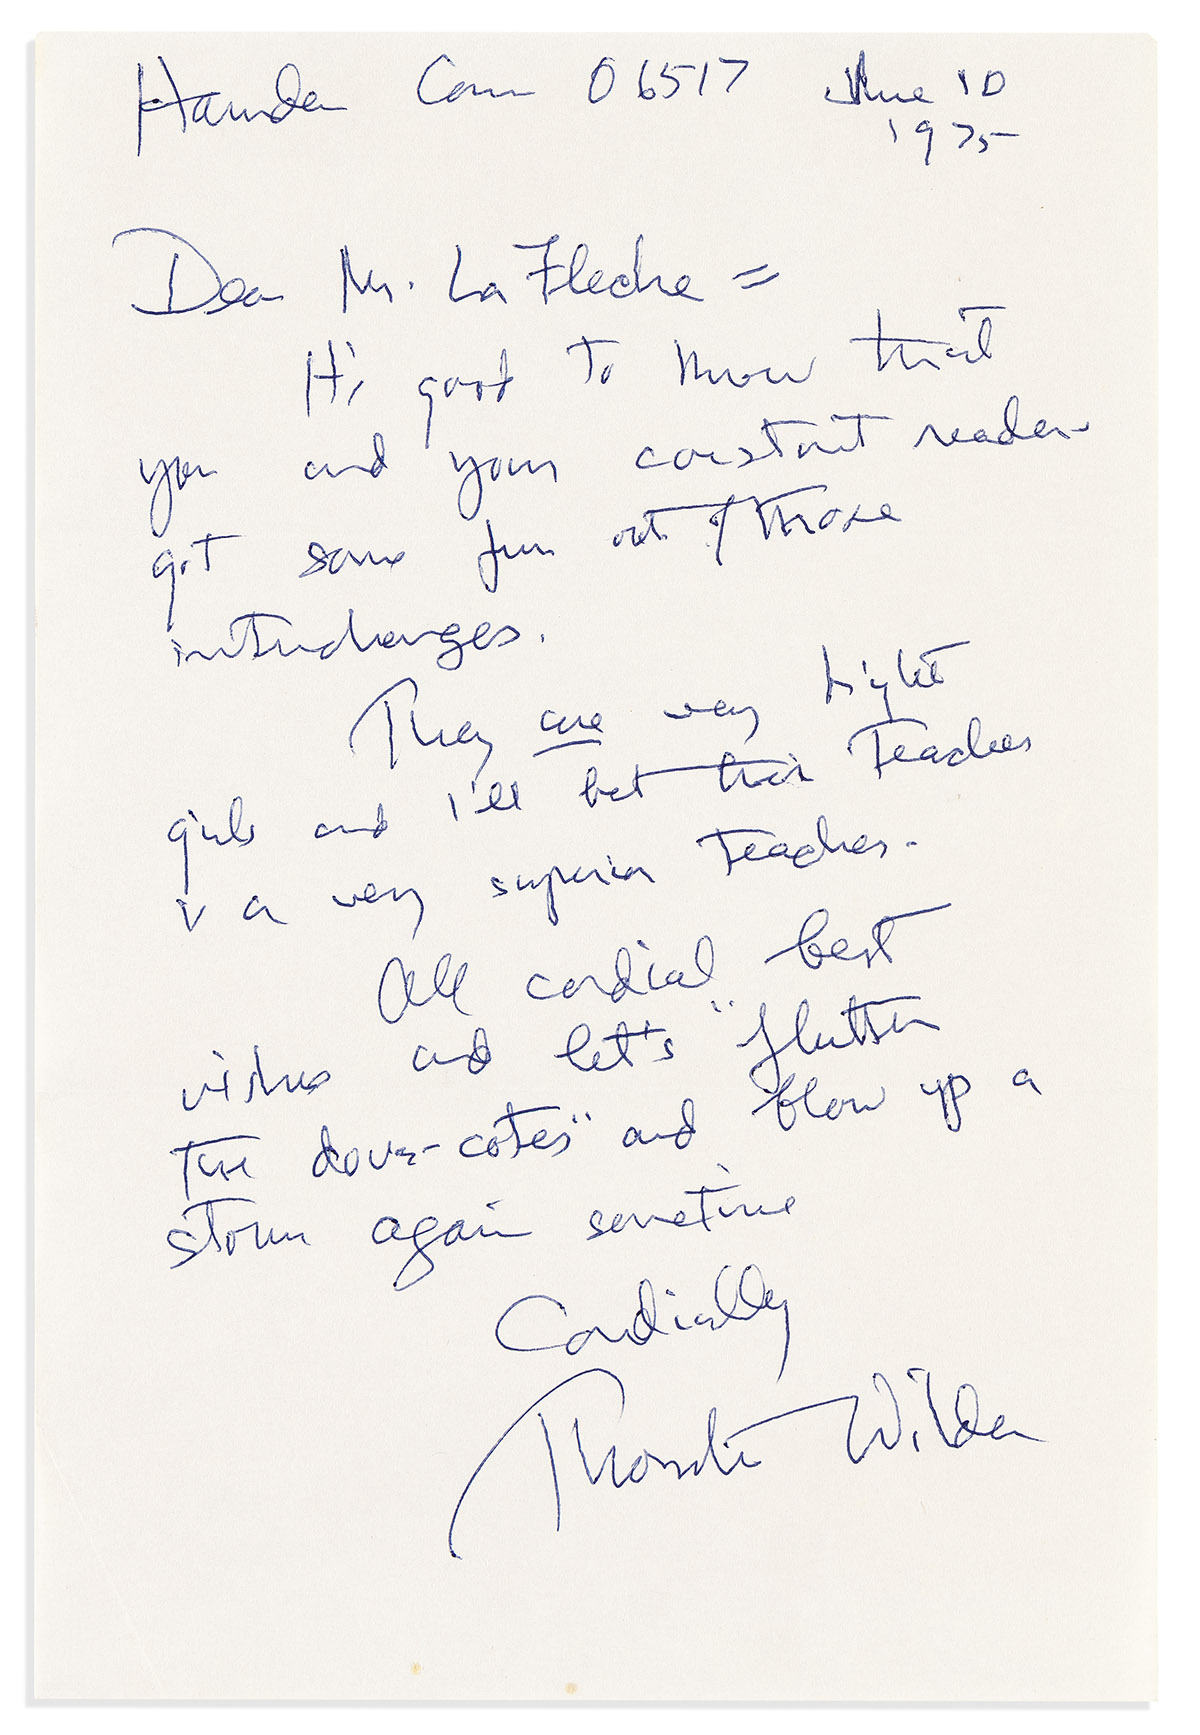 Hamden Conn 06517 June 10
1975
Dear Mr. La Fleche =
It's good to know that
you and your constant reader
got some fun out of those
interchanges.
They are very bright
girls and I'll bet their teacher
is a very superior teacher.
All cordial best
wishes and let's "flutter
the dove-cotes" and blow up a
storm again sometime
Cordially
Thornton Wilder